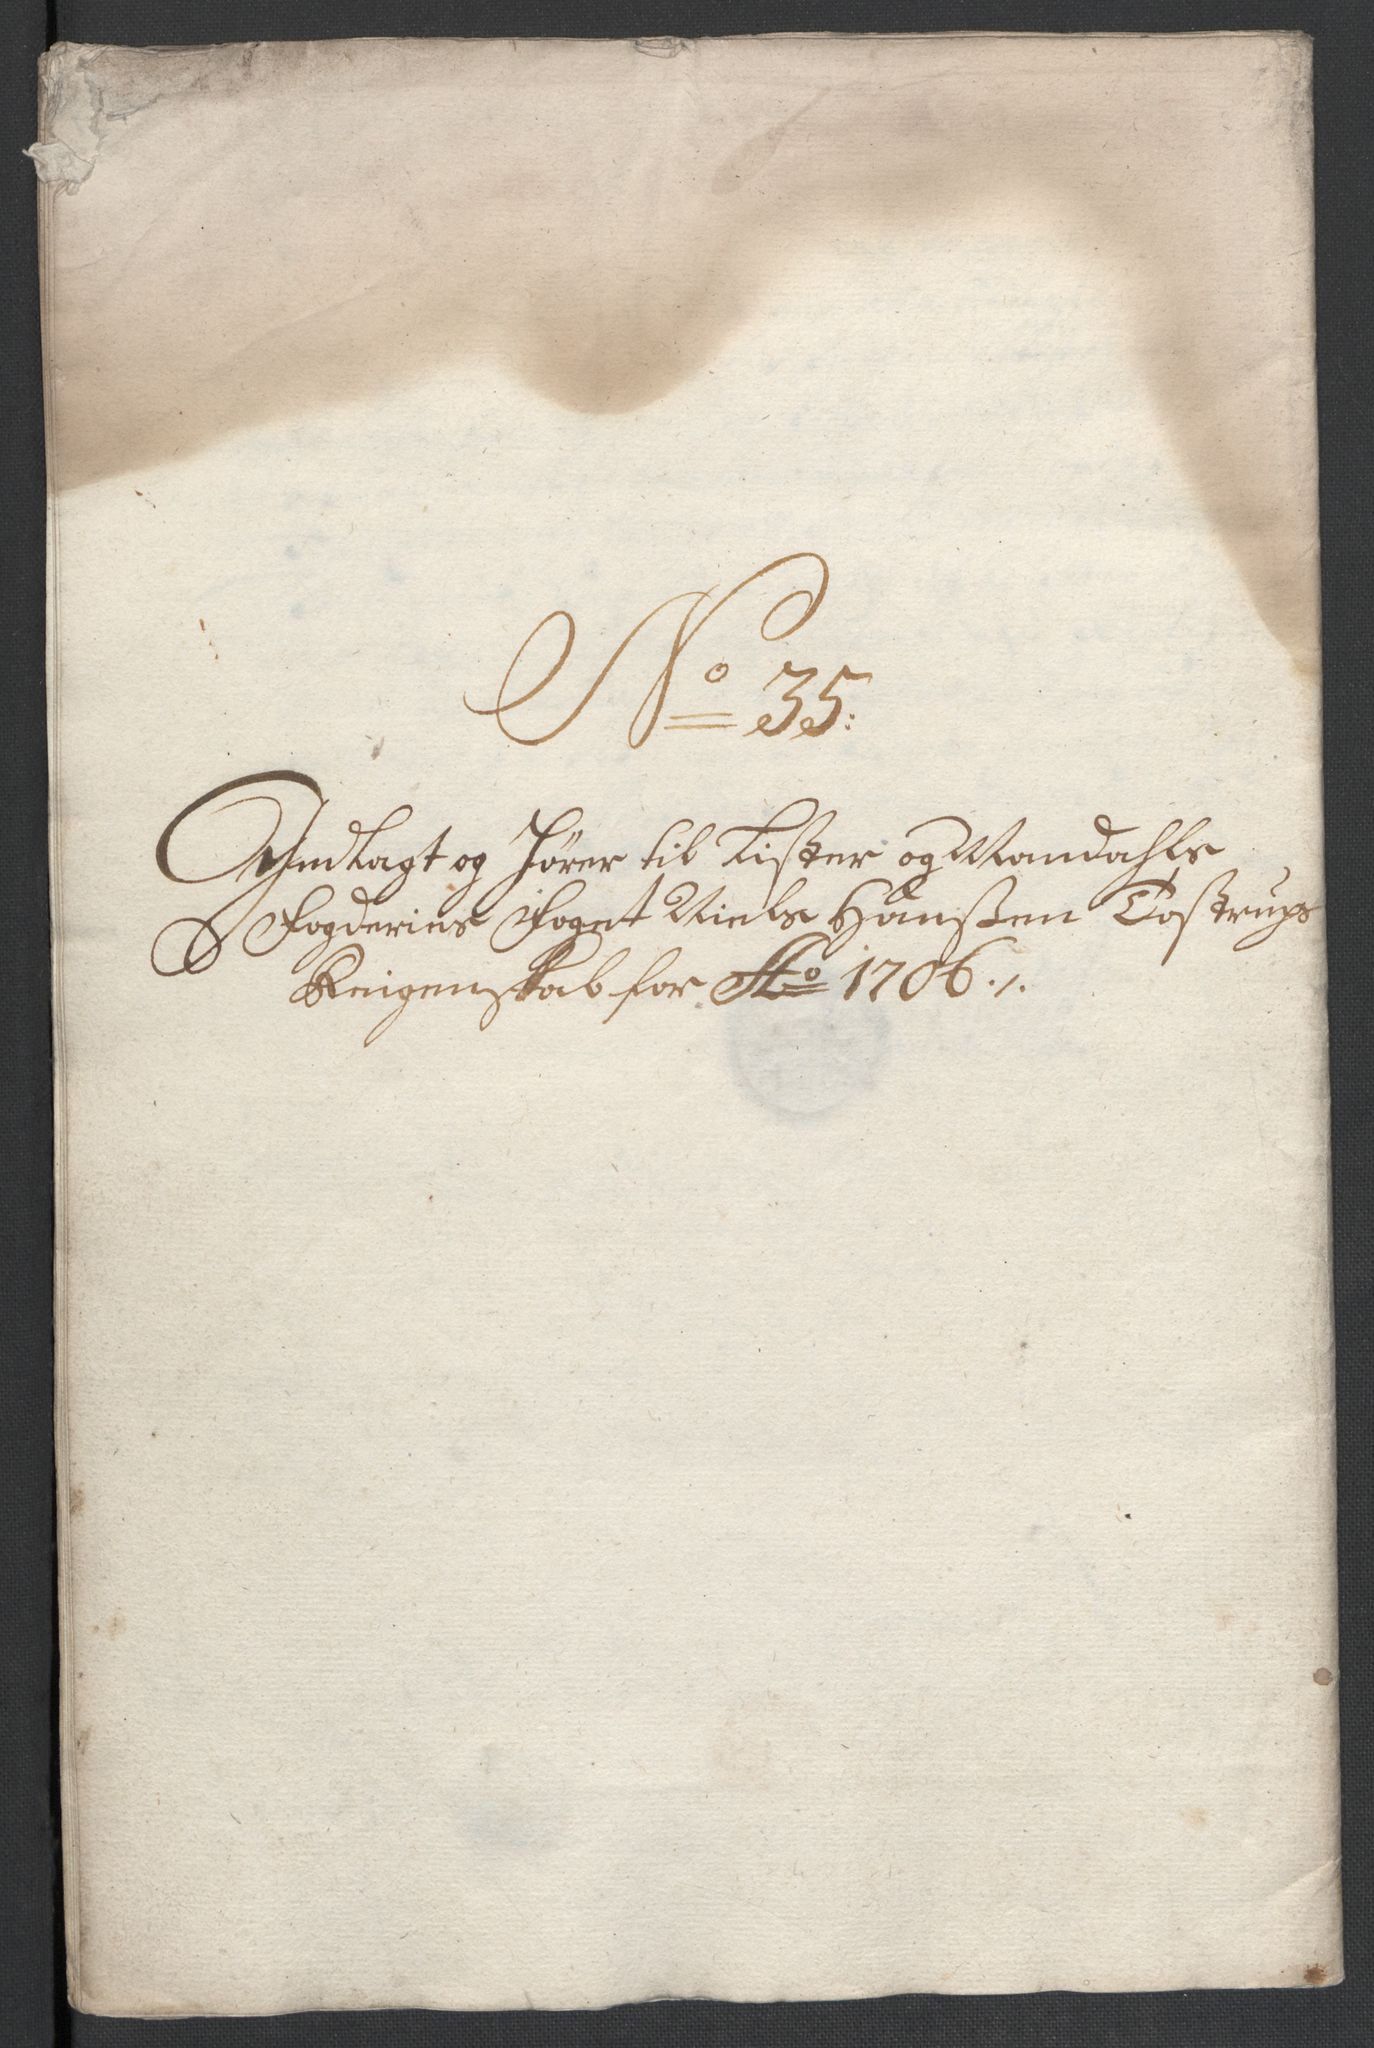 No 35:
Indlagt og Hører til Lister og Mandahls
Fogderies Foget Niels Hansßen Tostrups
Reigenskab for Ao 1706./.